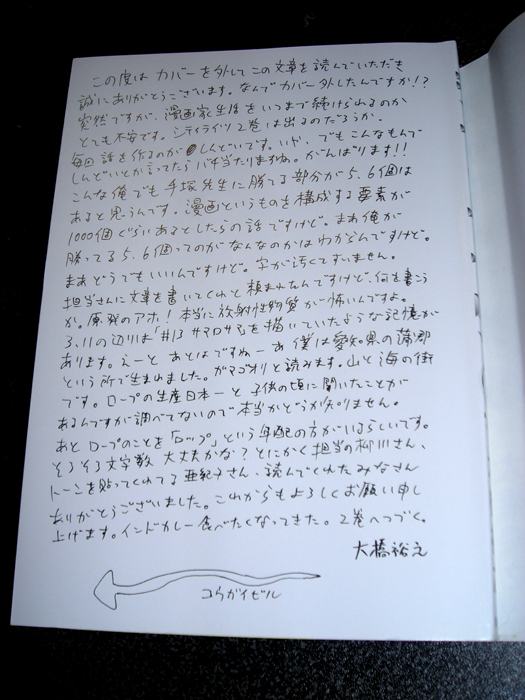 この度は カバーを外してこの文章を読んでいただき
誠にありがとうございます。なんでカバー外したんですか!?
突然ですが、漫画家生活をいつまで続けられるのか
とても不安です。シティライツ2巻は出るのだろうか。
毎回話を作るのがしんどいです。いや、でもこんなもんで
しんどいとか言ってたらバチ当たりますね。がんばります!!
こんな俺でも手塚先生に勝てる部分が5、6個は
あると思うんです。漫画というものを構成する要素が
1000個ぐらいあるとしたらの話ですけど。まあ俺が
勝ってる5、6個ってのがなんなのかはわからんですけど。
まあどうでもいいんですけど。字が汚くてすいません。
担当さんに文章を書いてくれと頼まれたんですけど、何を書こう
か。原発のアホ!本当に放射性物質が怖いんですよ。
3、11の辺りは「#13 サマロサマ」を描いていたような記憶が
あります。えーと あとはですねーあ 僕は愛知県の蒲郡
という所で生まれました。ガマゴオリと読みます。山と海の街
です。ロープの生産日本一と子供の頃に聞いたことが
あるんですが調べてないので本当かどうか知りません。
あと ロープのことを「ロップ」という年配の方がいるらしいです。
そろそろ文字数 大丈夫かな?とにかく担当の柳川さん、
トーンを貼ってくれてる亜紀子さん、読んでくれたみなさん
ありがとうございました。これからもよろしくお願い申し
上げます。インドカレー食べたくなってきた。2巻へつづく。
大橋裕之
コウガイビル